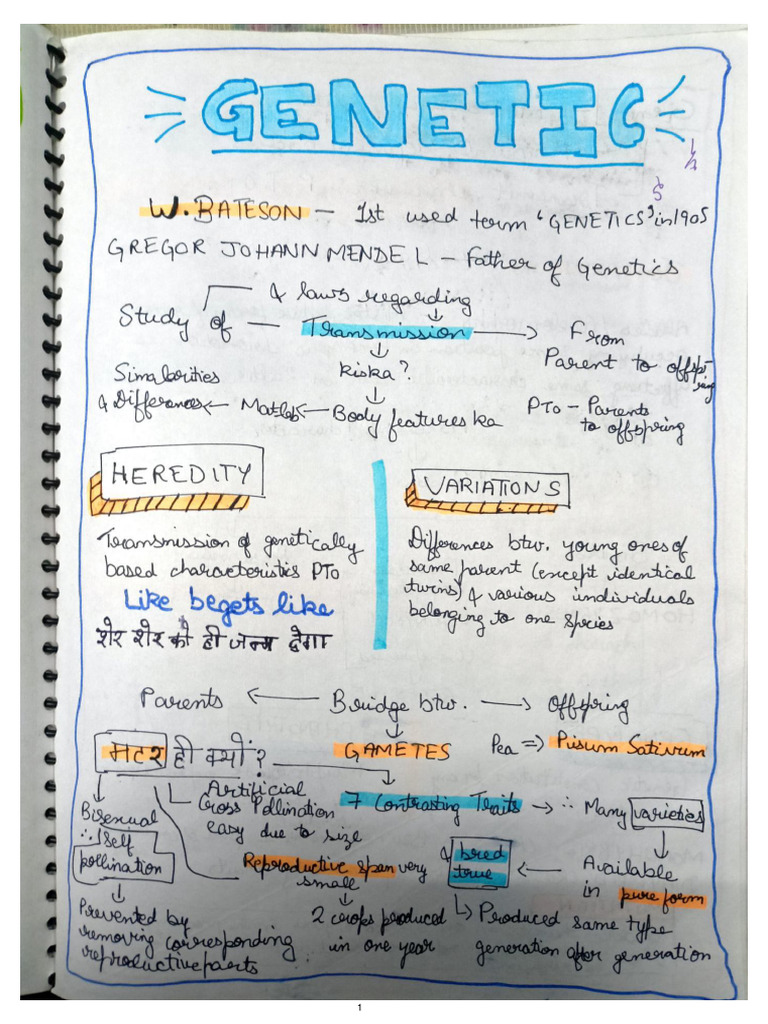 GENETIC
W. BATESON – 1st used term 'GENETICS' in 1905
GREGOR JOHANN MENDEL – Father of Genetics
& laws regarding
Study of — Transmission → From
Parent to offspring
kiska?
Similarities
& Differences ← Matlab ← Body features ka
PTO – Parents
to offspring
HEREDITY
Transmission of genetically
based characteristics PTO
Like begets like
शेर शेर को ही जन्म देगा
VARIATIONS
Differences btw. young ones of
same parent (except identical
twins) & various individuals
belonging to one species
Parents ← Bridge btw. → Offspring
GAMETES
Pea ⇒ Pisum Sativum
मटर ही क्यों?
Bisexual
∴ Self
pollination
Prevented by
removing corresponding
reproductive parts
Artificial
Cross Pollination
easy due to size
Reproductive span very
small
2 crops produced
in one year
7 Contrasting Traits → ∴ Many varieties
Available
in pure form
& bred
true
Produced same type
generation after generation
1